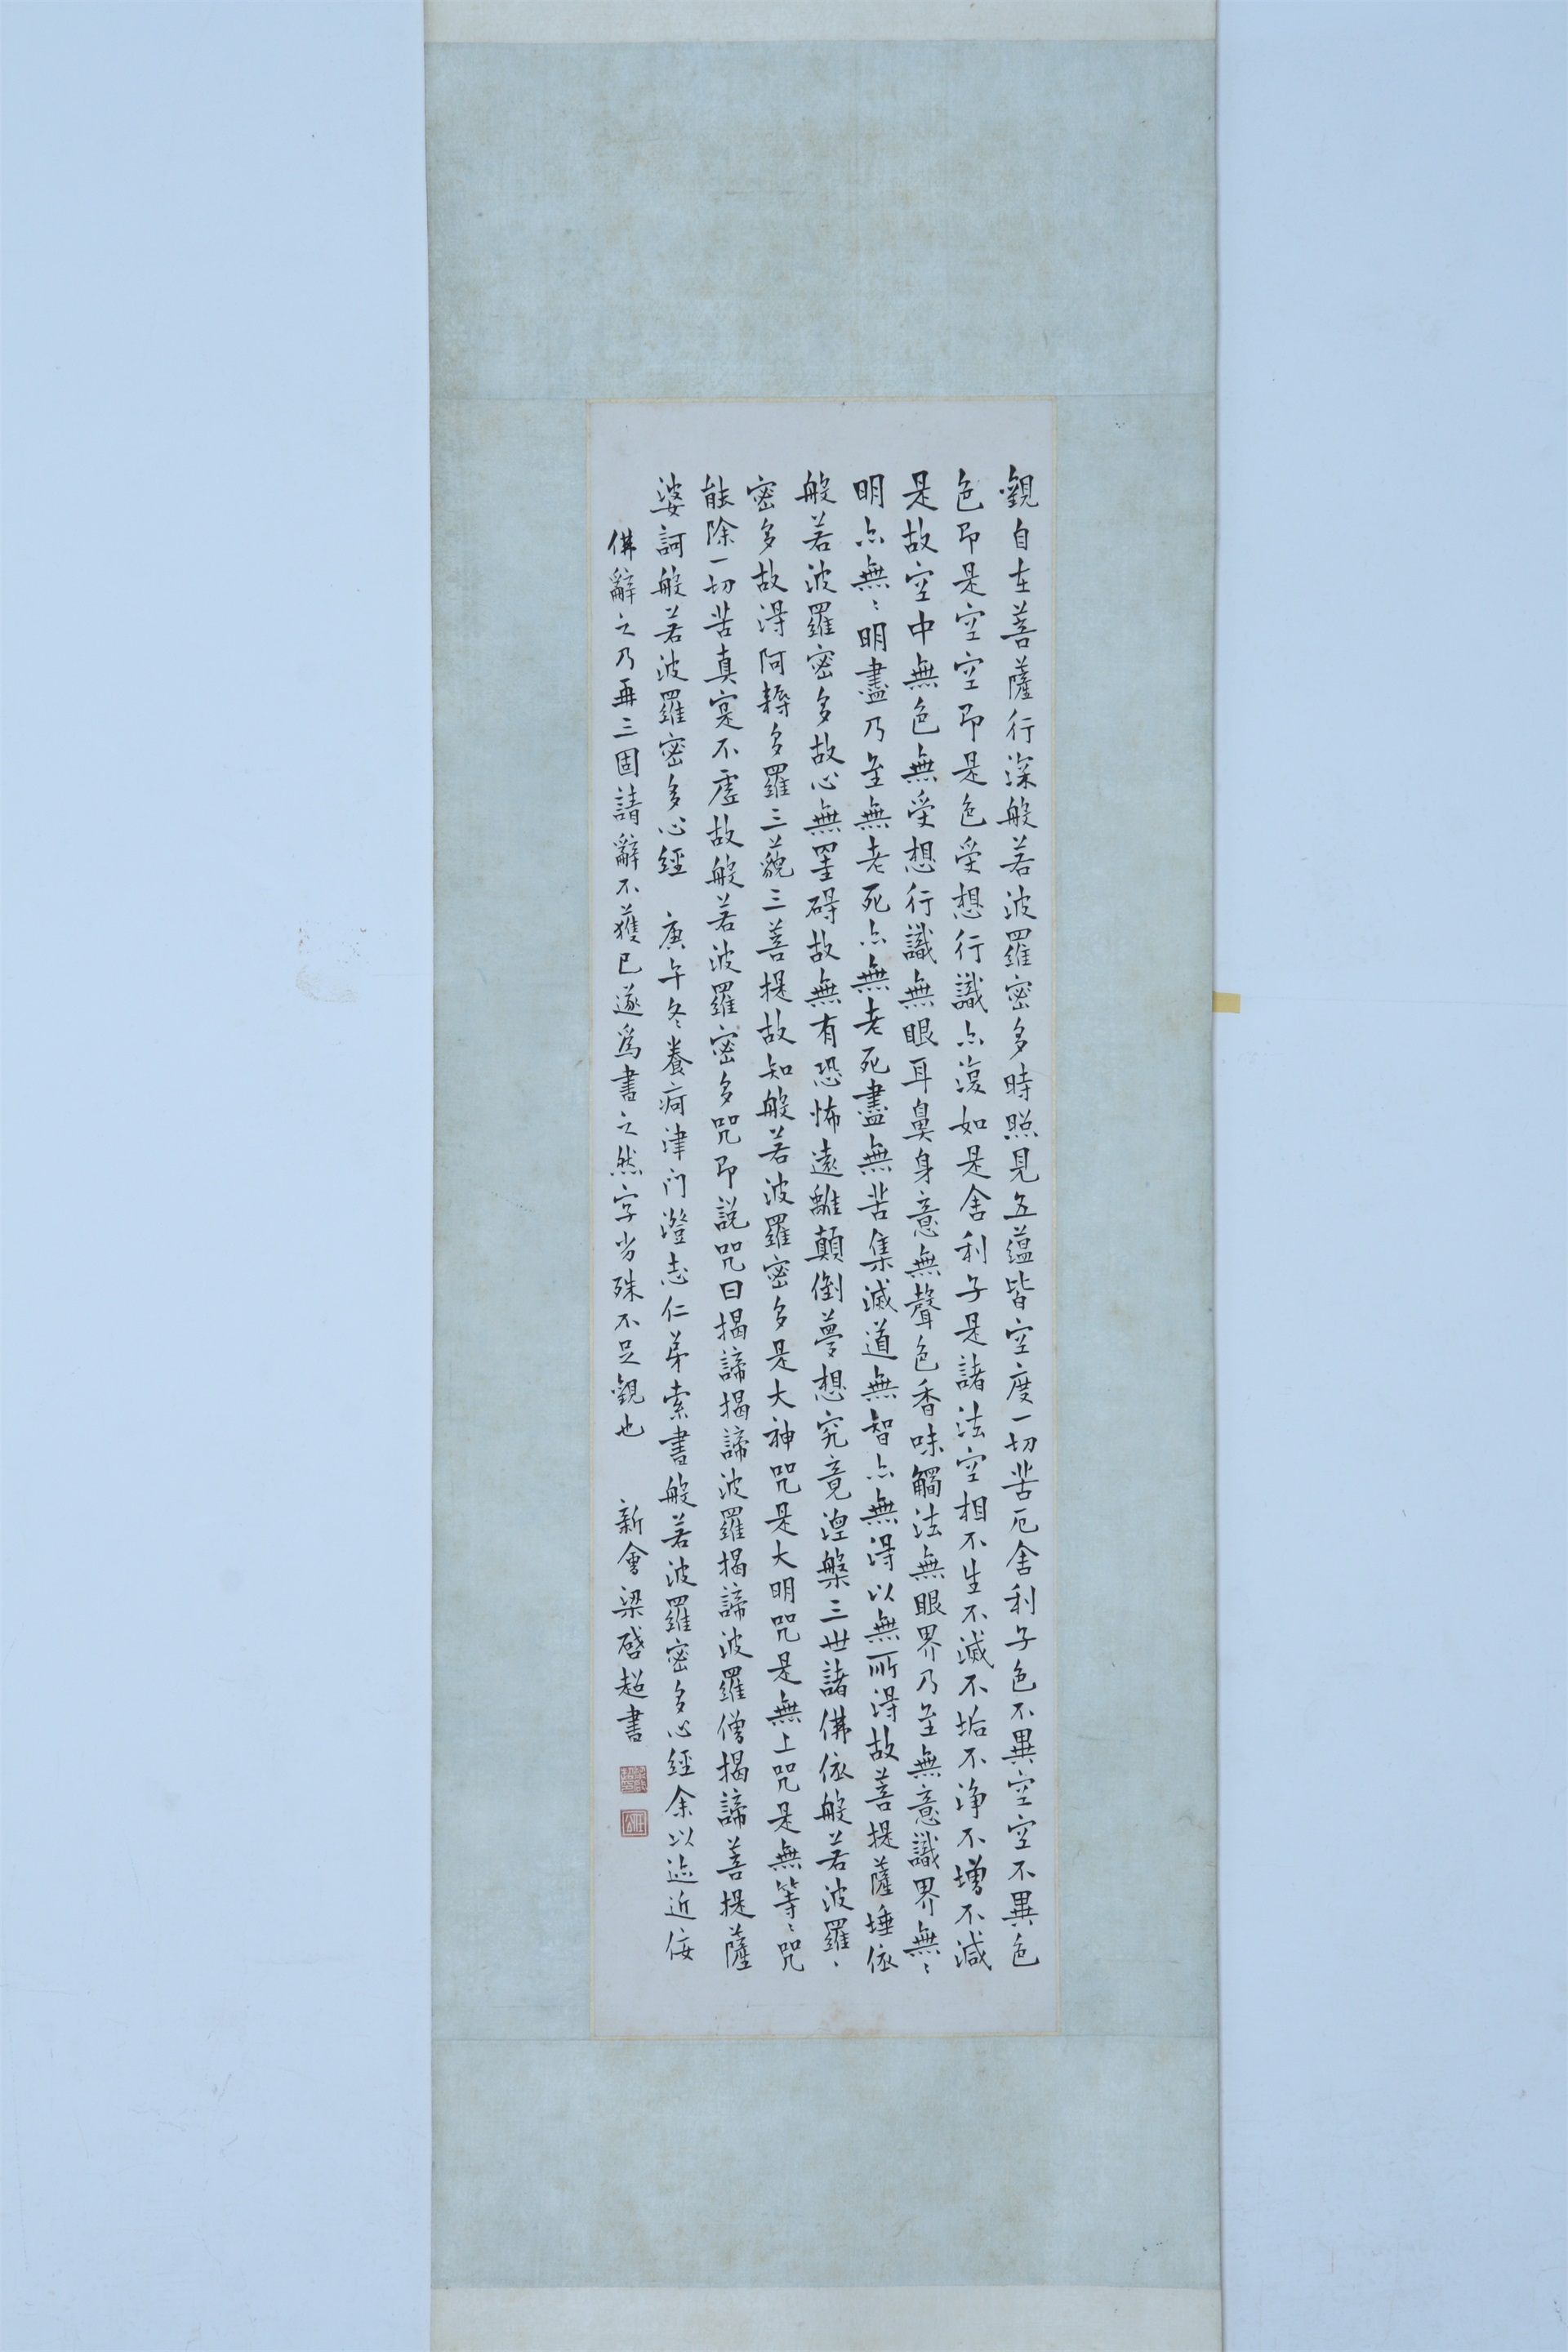 觀自在菩薩行深般若波羅密多時照見五蘊皆空度一切苦厄舍利子色不異空空不異色
色即是空空即是色受想行識亦復如是舍利子是諸法空相不生不滅不垢不淨不增不減
是故空中無色無受想行識無眼耳鼻身意無聲色香味觸法無眼界乃至無意識界無〻
明亦無〻明盡乃至無老死亦無老死盡無苦集滅道無智亦無得以無所得故菩提薩埵依
般若波羅密多故心無罣碍故無有恐怖遠離顛倒夢想究竟涅槃三世諸佛依般若波羅、
密多故得阿耨多羅三藐三菩提故知般若波羅密多是大神咒是大明咒是無上咒是無等〻咒
能除一切苦真寔不虛故般若波羅密多咒即説咒曰揭諦揭諦波羅揭諦波羅僧揭諦菩提薩
婆訶般若波羅密多心經 庚午冬養疴津门澄志仁弟索書般若波羅密多心經余以迹近佞
佛辭之乃再三固請辭不獲已遂爲書之然字劣殊不足觀也 新會梁啓超書